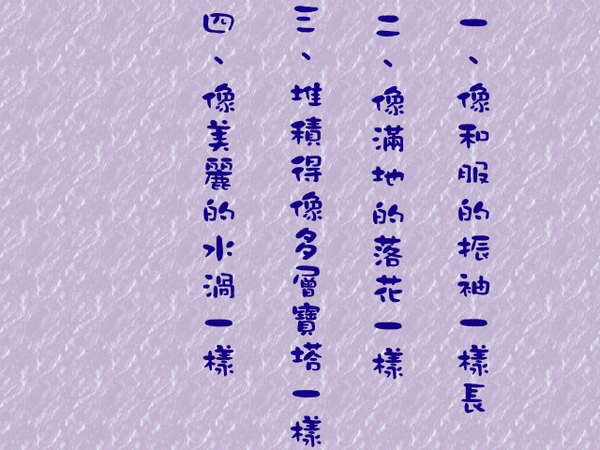 一、像和服的振袖一樣長
二、像滿地的落花一樣
三、堆積得像多層寶塔一樣
四、像美麗的水渦一樣